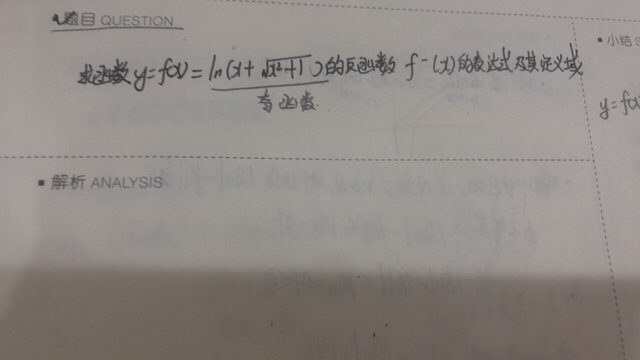 题目 QUESTION
小结 S
求函数 y=f(x)=ln(x+√x²+1)的反函数 f⁻(x)的表达式及其定义域
奇函数
y=f(x
解析 ANALYSIS